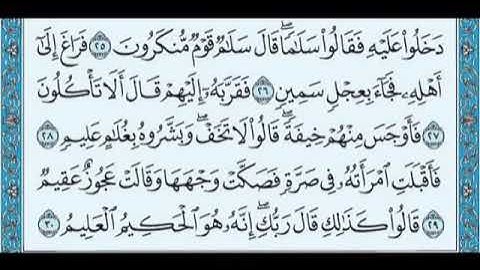 دَخَلُوا۟ عَلَيْهِ فَقَالُوا۟ سَلَـٰمًا ۖ قَالَ سَلَـٰمٌ قَوْمٌ مُّنكَرُونَ ٢٥ فَرَاغَ إِلَىٰٓ
أَهْلِهِۦ فَجَآءَ بِعِجْلٍ سَمِينٍ ٢٦ فَقَرَّبَهُۥٓ إِلَيْهِمْ قَالَ أَلَا تَأْكُلُونَ
٢٧ فَأَوْجَسَ مِنْهُمْ خِيفَةً ۖ قَالُوا۟ لَا تَخَفْ ۖ وَبَشَّرُوهُ بِغُلَـٰمٍ عَلِيمٍ ٢٨
فَأَقْبَلَتِ ٱمْرَأَتُهُۥ فِى صَرَّةٍ فَصَكَّتْ وَجْهَهَا وَقَالَتْ عَجُوزٌ عَقِيمٌ
٢٩ قَالُوا۟ كَذَٰلِكِ قَالَ رَبُّكِ ۖ إِنَّهُۥ هُوَ ٱلْحَكِيمُ ٱلْعَلِيمُ ٣٠